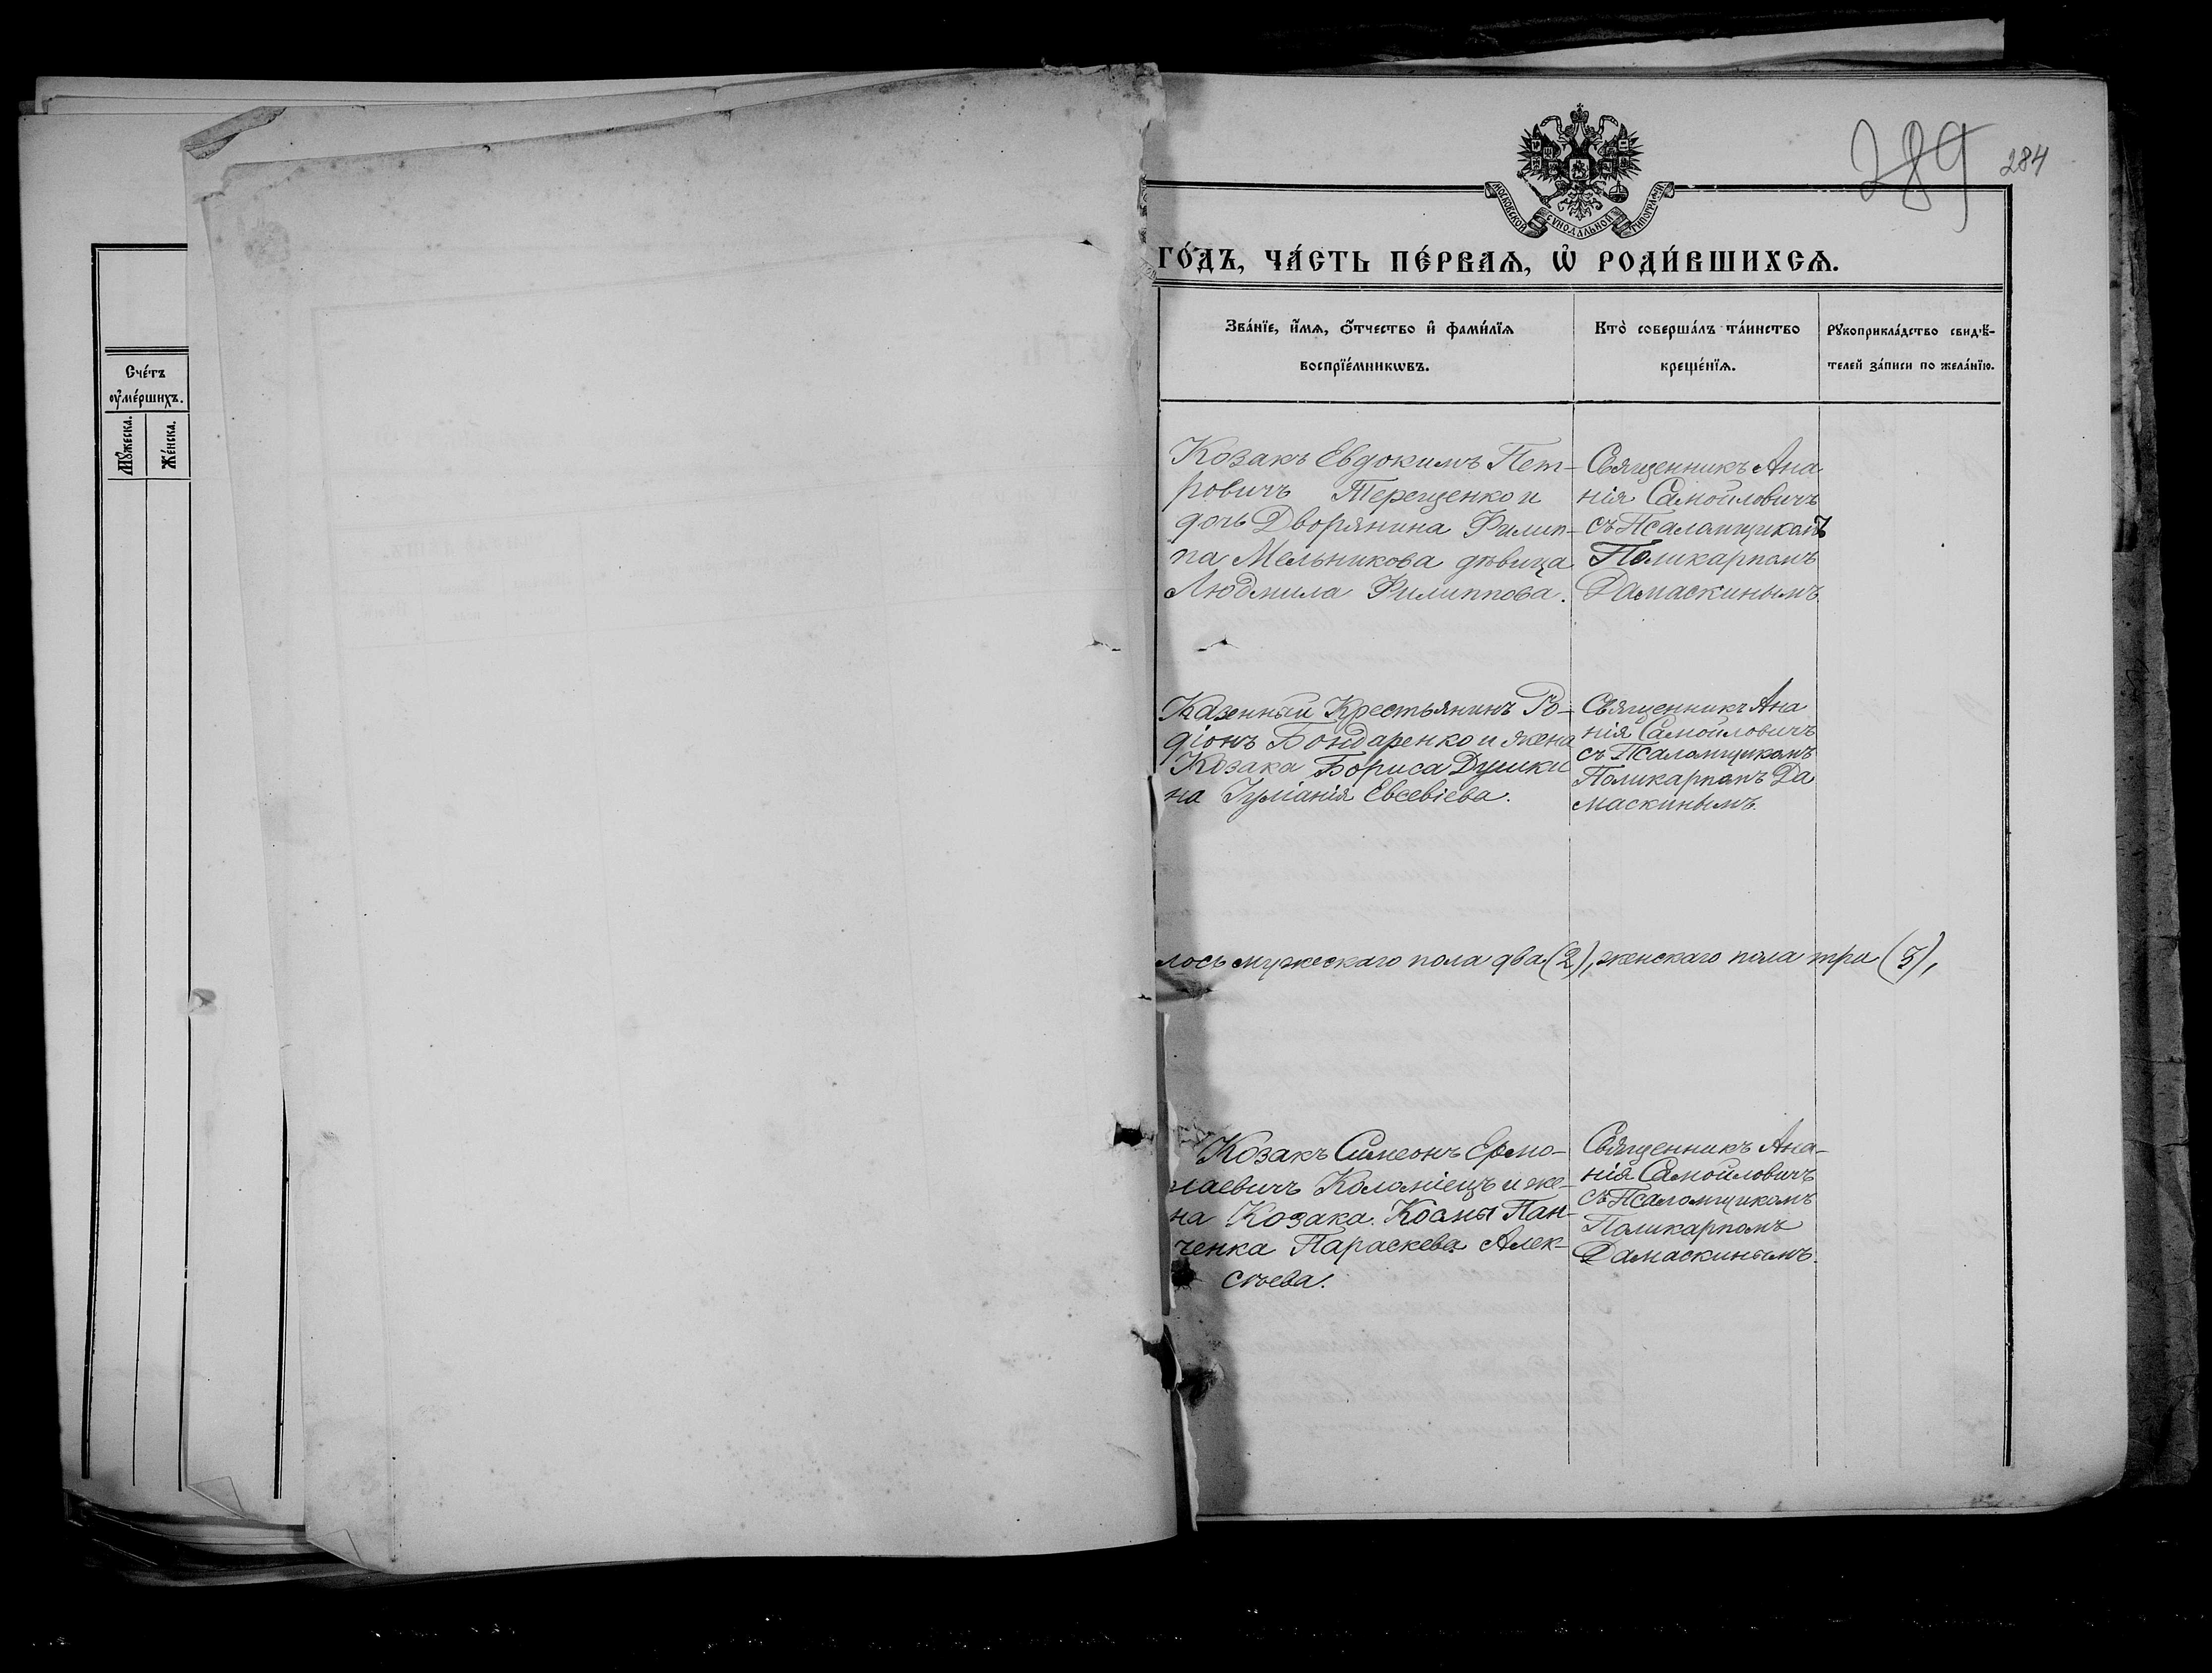 289
284
МОСКОВСКОЙ СѴНОДАЛЬНОЙ ТИПОГРАФІИ
ГО́ДЪ, ЧА́СТЬ ПЕ́РВАѦ, Ѡ҆ РОДИ́ВШИХСѦ.
Счётъ
оу҆ме́ршихъ.
Мꙋ́жеска.
Же́нска.
Зва́нїе, и҆́мѧ, ѻ҆́тчество и҆ фами́лїѧ
воспрїе́мникѡвъ.
Кто̀ соверша́лъ та́инство
креще́нїѧ.
Рꙋкоприкла́дство свидѣ́-
телей за́писи по жела́нїю.
Козакъ Евдокимъ Пет-
ровичъ Терещенко и
дочь Дворянина Филип-
па Мельникова дѣвица
Людмила Филиппова.
Священникъ Ана
нія Самойловичъ
съ Псаломщикомъ
Поликарпомъ
Дамаскинымъ
Казенный Крестьянинъ Ро-
діонъ Бондаренко и жена
Козака Бориса Душки
на Іуліанія Евсевіева.
Священникъ Ана
нія Самойловичъ
съ Псаломщикомъ
Поликарпомъ Да
маскинымъ.
лось мужескаго пола два (2), женскаго пола три (3),
Козакъ Симеонъ Ермо-
лаевичъ Коломіецъ и же-
на Козака Космы Пан-
ченка Параскева Алек-
сѣева.
Священникъ Ана-
нія Самойловичъ
съ Псаломщикомъ
Поликарпомъ
Дамаскинымъ.